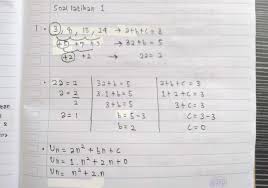 Soal latihan 1
1. 3, 8, 15, 24 → a+b+c = 3
+5 +7 +9 → 3a+b = 5
+2 +2 → 2a = 2
2a = 2 3a+b = 5 a+b+c = 3
a = 2/2 3.1+b = 5 1+2+c = 3
3+b = 5 3+c = 3
a = 1 b = 5-3 c = 3-3
b = 2 c = 0
Un = an² + bn + c
Un = 1.n² + 2n + 0
Un = n² + 2n